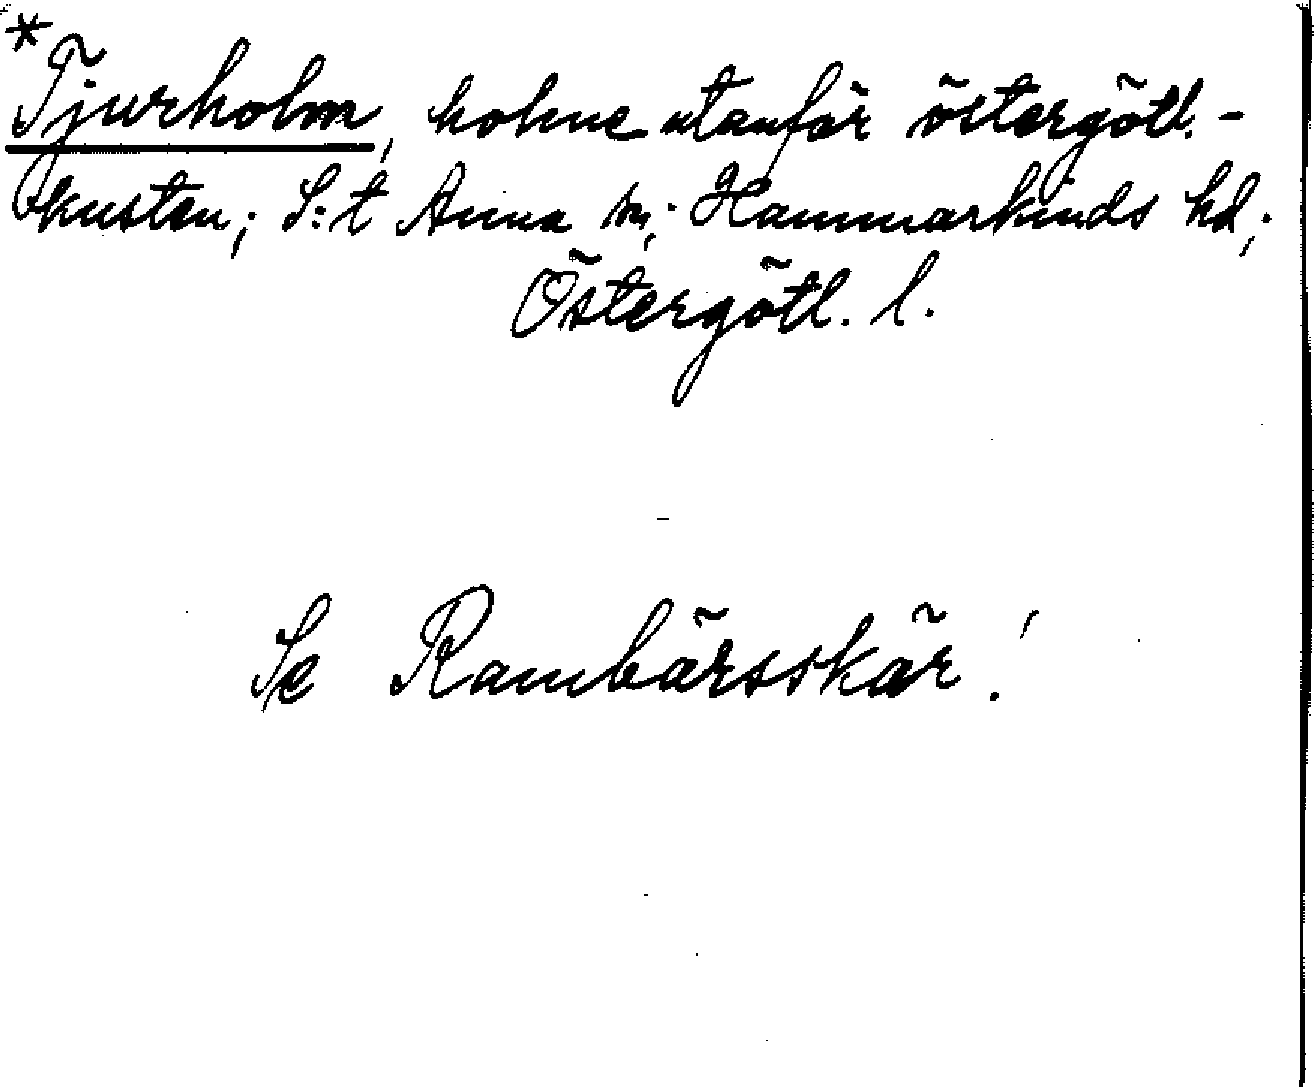 *Tjurholm, holme utanför östergötl.-
kusten; S:t Anna sn; Hammarkinds hd;
Östergötl. l.
Se Rambärsskär!